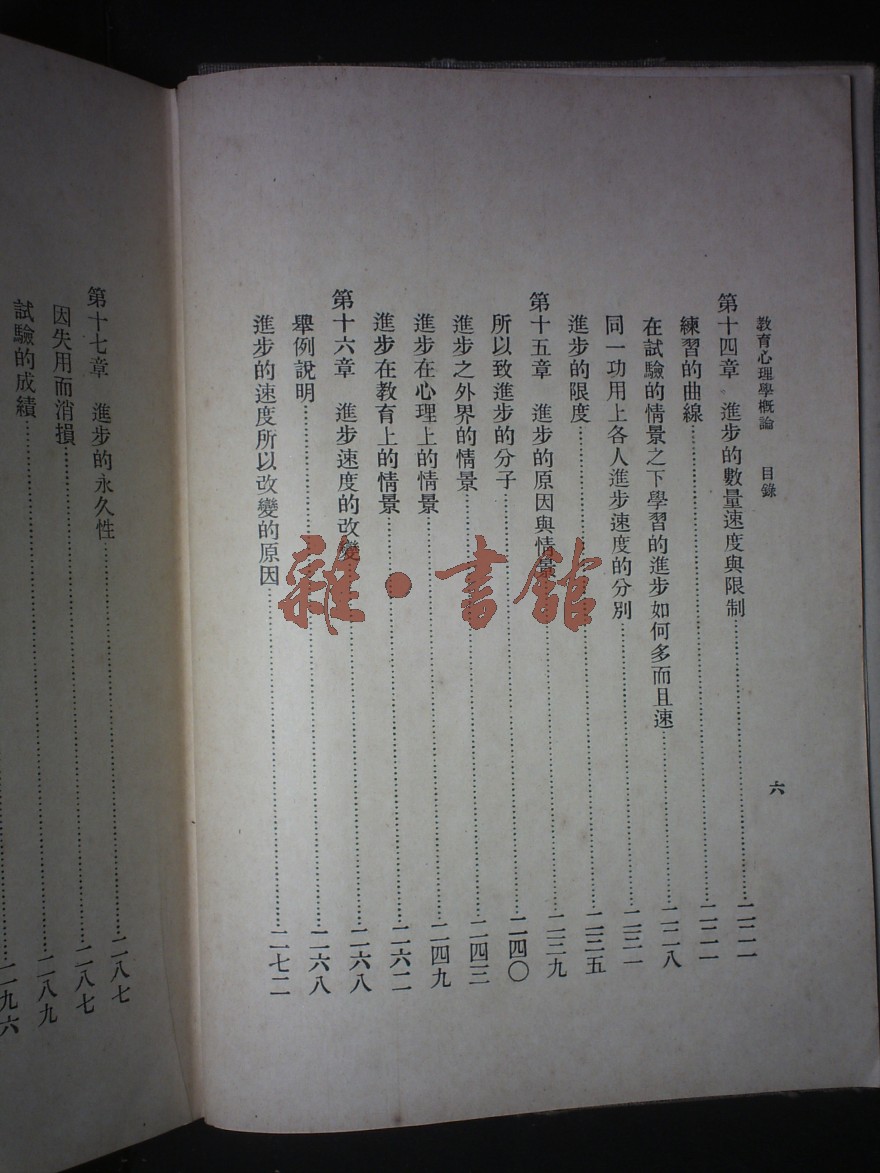 教育心理學概論 目錄 六
第十四章 進步的數量速度與限制……二二一
練習的曲線……二二一
在試驗的情景之下學習的進步如何多而且速……二二八
同一功用上各人進步速度的分別……二三一
進步的限度……二三五
第十五章 進步的原因與情景……二三九
所以致進步的分子……二四〇
進步之外界的情景……二四三
進步在心理上的情景……二四九
進步在教育上的情景……二六二
第十六章 進步速度的改變……二六八
舉例說明……二六八
進步的速度所以改變的原因……二七二
第十七章 進步的永久性……二八七
因失用而消損……二八七
試驗的成績……二八九
二九六
雜·書館